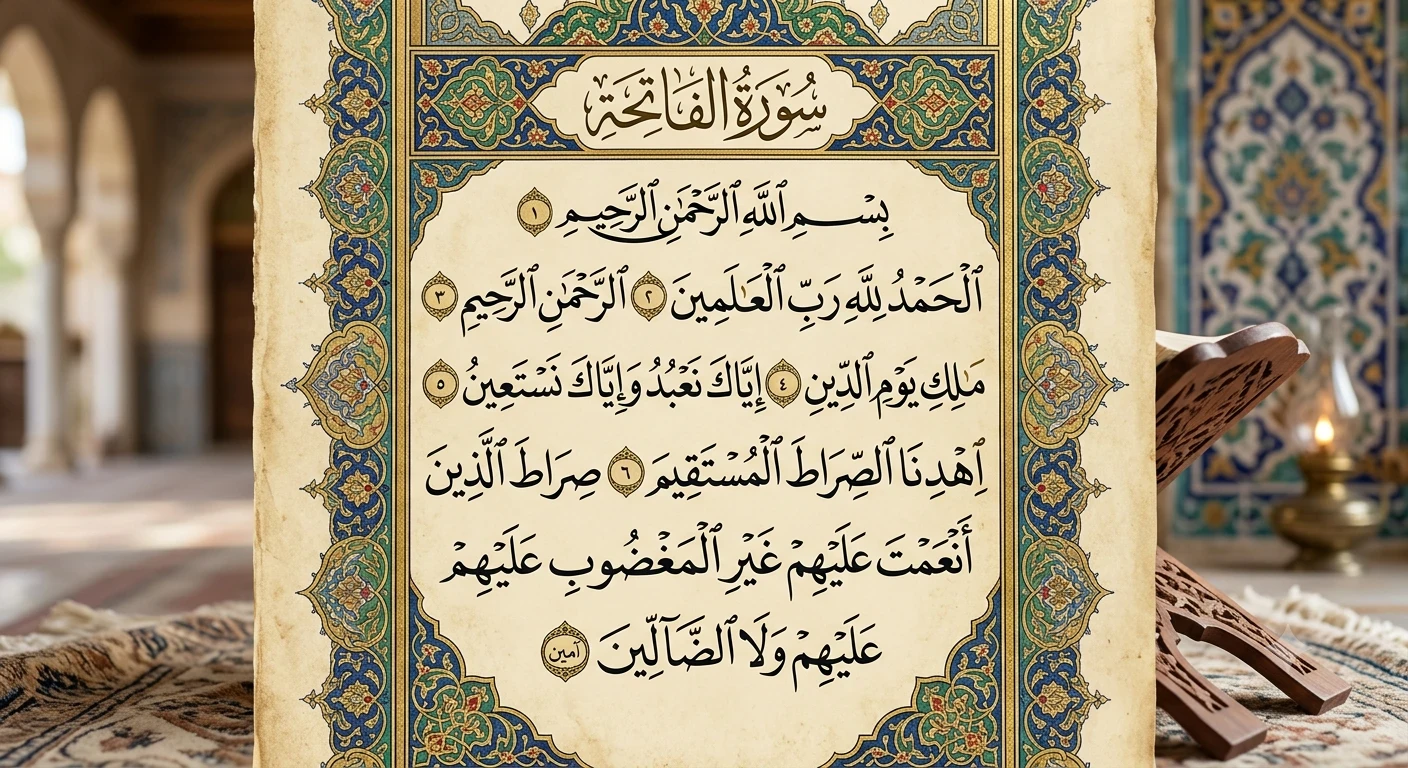 سُورَةُ الفَاتِحَةِ
بِسْمِ ٱللَّهِ ٱلرَّحْمَٰنِ ٱلرَّحِيمِ ١
ٱلْحَمْدُ لِلَّهِ رَبِّ ٱلْعَٰلَمِينَ ٢ ٱلرَّحْمَٰنِ ٱلرَّحِيمِ ٣
مَٰلِكِ يَوْمِ ٱلدِّينِ ٤ إِيَّاكَ نَعْبُدُ وَإِيَّاكَ نَسْتَعِينُ ٥
ٱهْدِنَا ٱلصِّرَاطَ ٱلْمُسْتَقِيمَ ٦ صِرَاطَ ٱلَّذِينَ
أَنْعَمْتَ عَلَيْهِمْ غَيْرِ ٱلْمَغْضُوبِ عَلَيْهِمْ
عَلَيْهِمْ وَلَا ٱلضَّآلِّينَ آمين